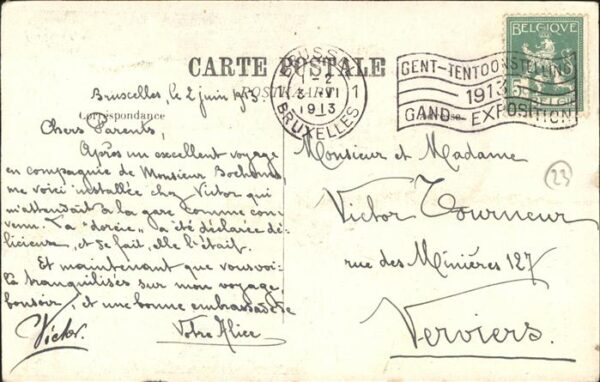 CARTE POSTALE
POSTKAART
Correspondance
Bruxelles, le 2 juin 1913.
Chers Parents,
Après un excellent voyage
en compagnie de Monsieur
me voici installée chez Victor qui
m'attendait à la gare comme con-
venu. La "dorée" a été déclarée dé-
licieuse, et de fait, elle l'était.
Et maintenant que vous voi-
là tranquilisés sur mon voyage,
bonsoir, et une bonne embrassade de
Victor.
Votre Alice
BRUSSEL
1-2
1 3 VI 1
1913
BRUXELLES
GENT-TENTOONSTELLING
1913
GAND EXPOSITION
BELGIQUE
5
BELGIË
Monsieur et Madame
Victor Tourneur
rue des Minières 127
Verviers.
23